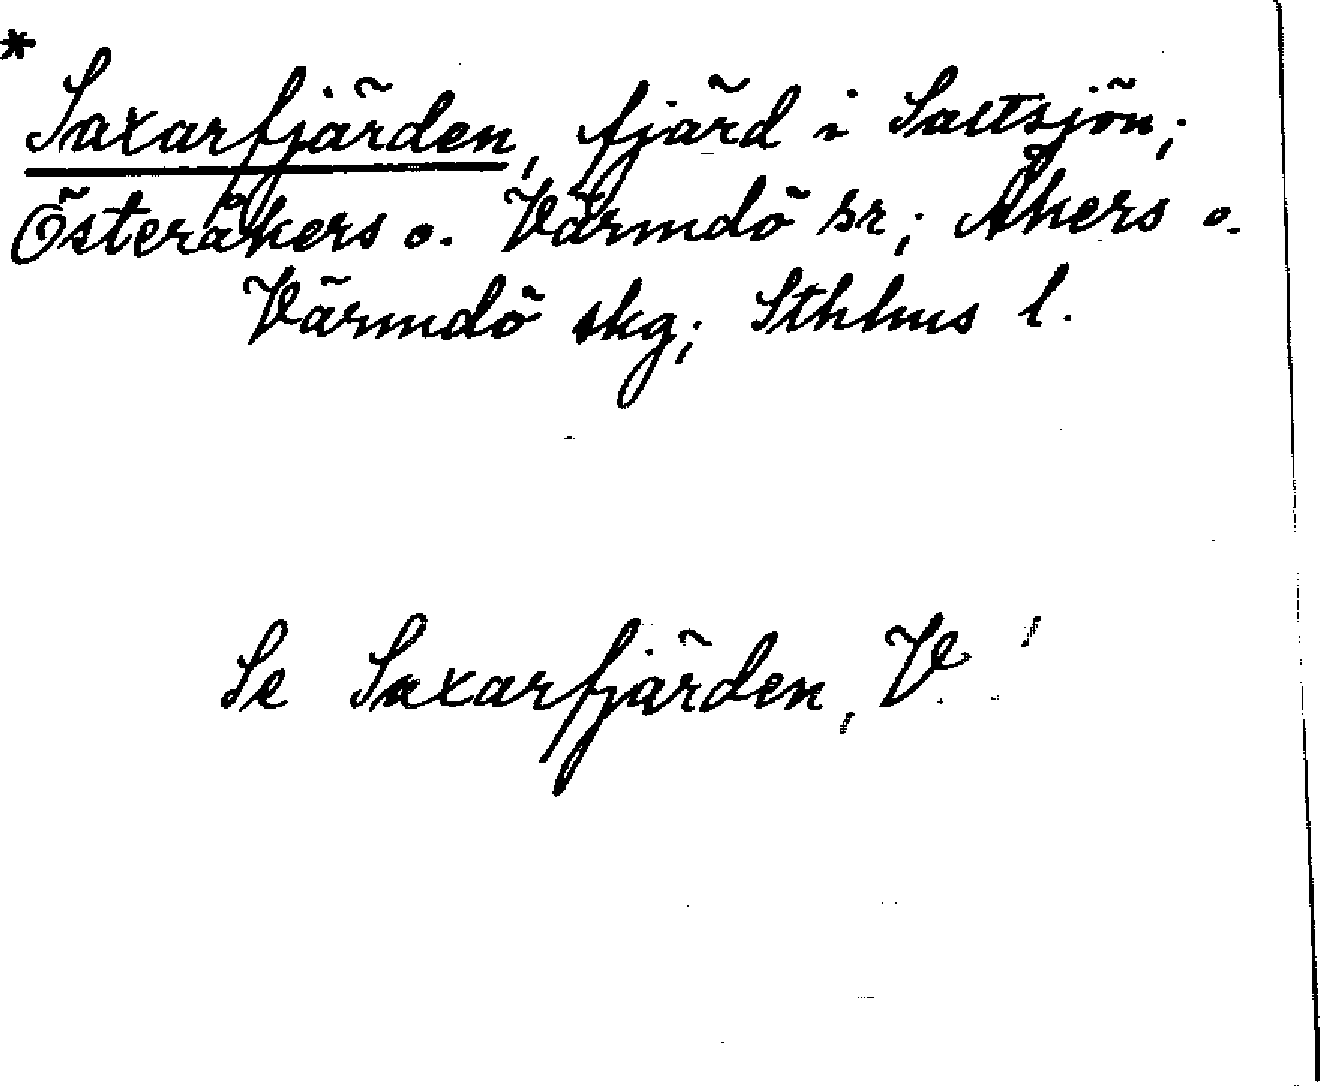 * Saxarfjärden, fjärd i Saltsjön;
Österåkers o. Värmdö sr; Åkers o.
Värmdö skg; Sthlms l.
Se Saxarfjärden, V.